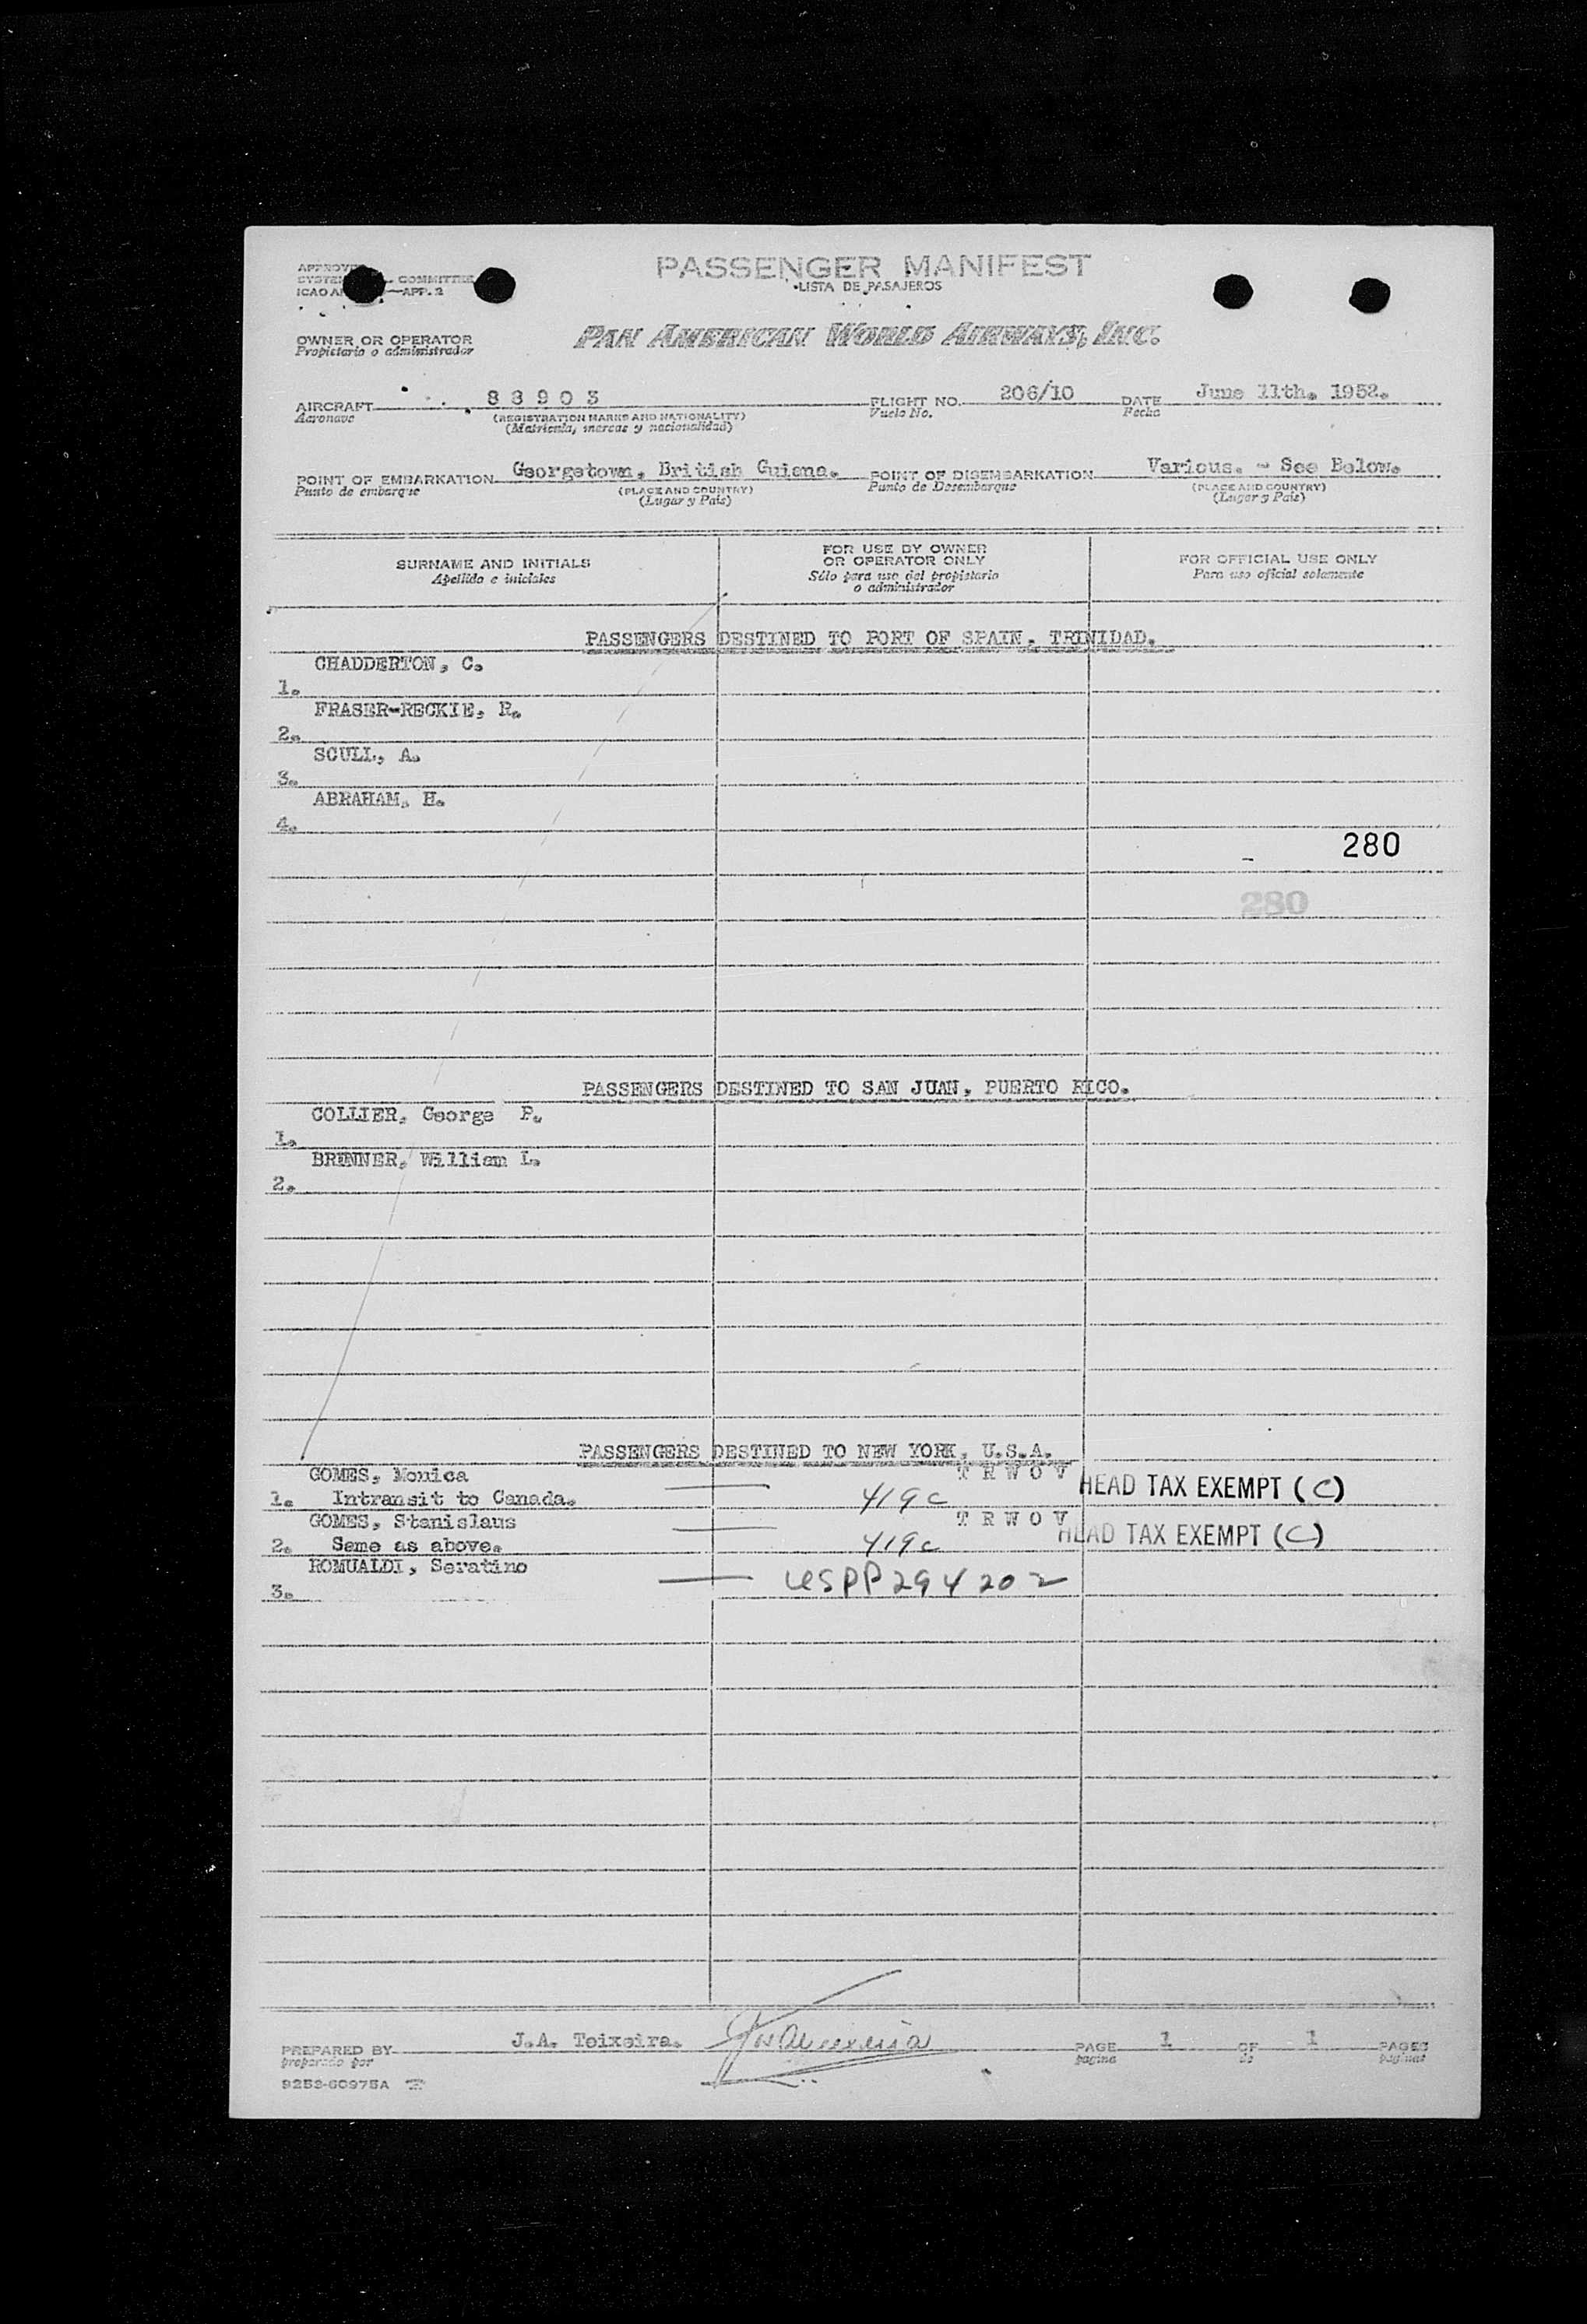 PASSENGER MANIFEST
LISTA DE PASAJEROS
COMMITTEE
ICAO
APP. 2
OWNER OR OPERATOR
Propietario o administrador
PAN AMERICAN WORLD AIRWAYS, INC.
AIRCRAFT 88903 FLIGHT NO. 206/10 DATE June 11th. 1952.
Aeronave (REGISTRATION MARKS AND NATIONALITY) Vuelo No. Fecha
(Matrícula, marcas y nacionalidad)
POINT OF EMBARKATION Georgetown, British Guiana. POINT OF DISEMBARKATION Various. - See Below.
Punto de embarque (PLACE AND COUNTRY) Punto de Desembarque (PLACE AND COUNTRY)
(Lugar y País) (Lugar y País)
SURNAME AND INITIALS FOR USE BY OWNER OR OPERATOR ONLY FOR OFFICIAL USE ONLY
Apellido e iniciales Sólo para uso del propietario o administrador Para uso oficial solamente
PASSENGERS DESTINED TO PORT OF SPAIN, TRINIDAD.
CHADDERTON, C.
1.
FRASER-RECKIE, R.
2.
SCULL, A.
3.
ABRAHAM, H.
4.
280
280
PASSENGERS DESTINED TO SAN JUAN, PUERTO RICO.
COLLIER, George P.
1.
BRENNER, William L.
2.
PASSENGERS DESTINED TO NEW YORK, U.S.A.
GOMES, Monica T R W O V
1. Intransit to Canada. 419c HEAD TAX EXEMPT (C)
GOMES, Stanislaus T R W O V
2. Same as above. 419c HEAD TAX EXEMPT (C)
ROMUALDI, Seratino
3. USPP294202
PREPARED BY J.A. Teixeira. PAGE 1 OF 1 PAGES
preparado por página de páginas
9253-60975A